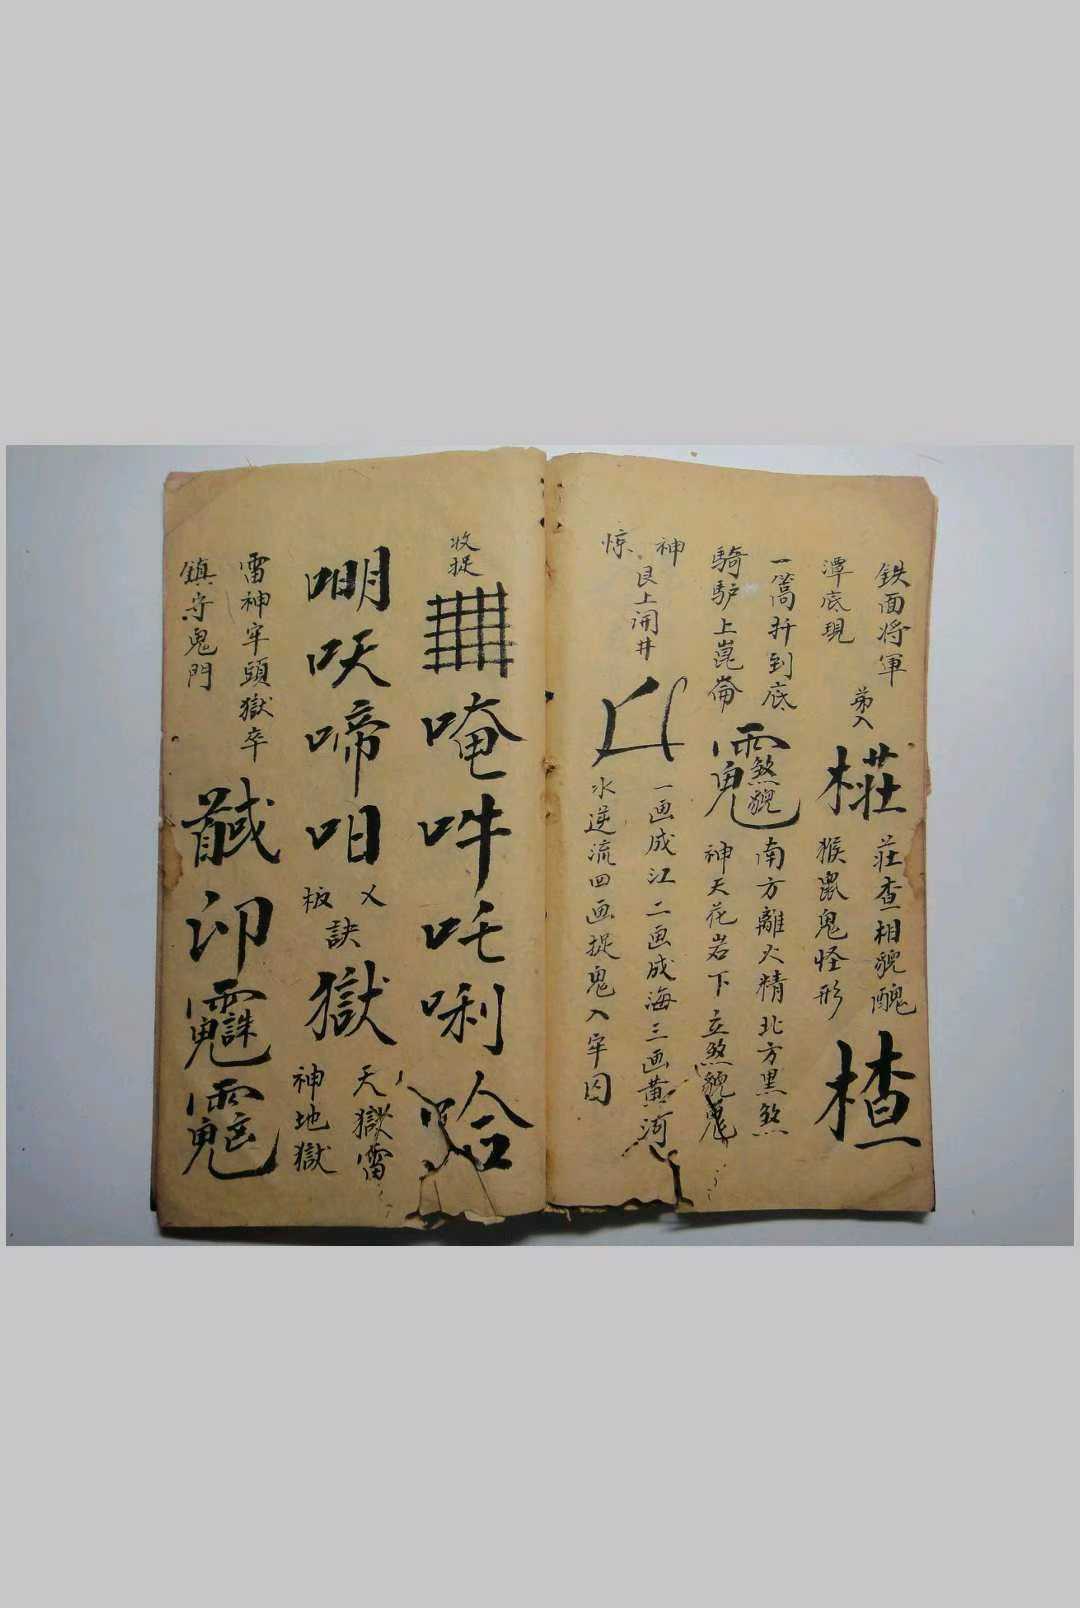 鉄面将軍
潭底現
弟入
𣙷
荘查相貌醜
猴鼠鬼怪形
楂
一篙扦到底
騎馿上崑崙
南方離火精北方黑煞
神天花岩下立煞貌鬼
神
惊
艮上開井
一画成江二画成海三画黄河
水逆流四画捉鬼入牢囚
收捉
唵吽吒唎哈
啼咀
板訣
獄
天獄雷
神地獄
雷神牢頭獄卒
鎮守鬼門